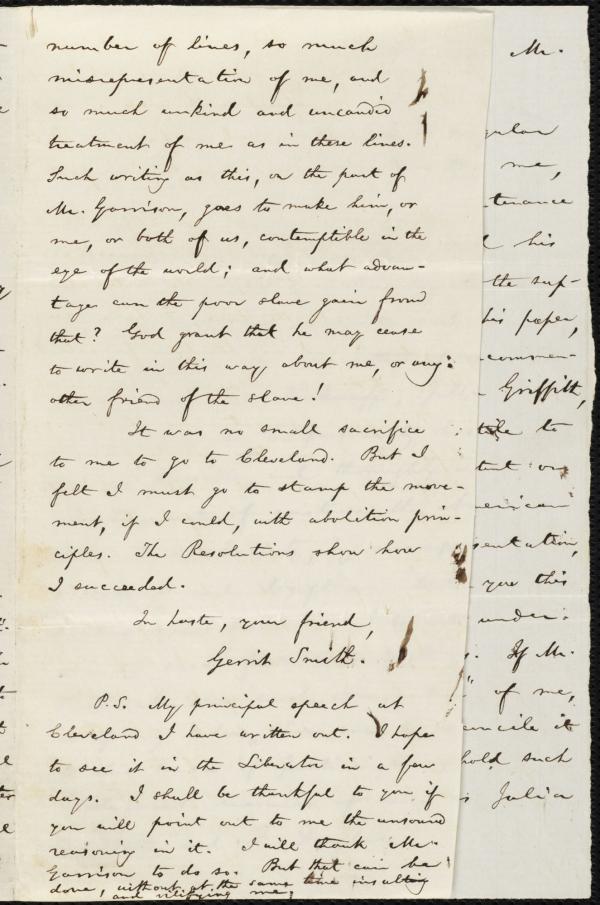 number of lines, so much
misrepresentation of me, and
so much unkind and uncandid
treatment of me as in these lines.
Such writing as this, on the part of
Mr. Garrison, goes to make him, or
me, or both of us, contemptible in the
eye of the world; and what advan-
tage can the poor slave gain from
that? God grant that he may cease
to write in this way about me, or any
other friend of the slave!
It was no small sacrifice
to me to go to Cleveland. But I
felt I must go to stamp the move-
ment, if I could, with abolition prin-
ciples. The Resolutions show how
I succeeded.
In haste, your friend,
Gerrit Smith.
P.S. My principal speech at
Cleveland I have written out. I hope
to see it in the Liberator in a few
days. I shall be thankful to you if
you will point out to me the unsound
reasoning in it. I will thank Mr.
Garrison to do so. But that can be
done, without at the same time insulting
and vilifying me.
Mr.
gular
me,
tenance
his
the sup-
his paper,
commen-
Griffith,
to
erican
sentation,
you this
under-
If Mr.
of me,
oncile it
hold such
Julia